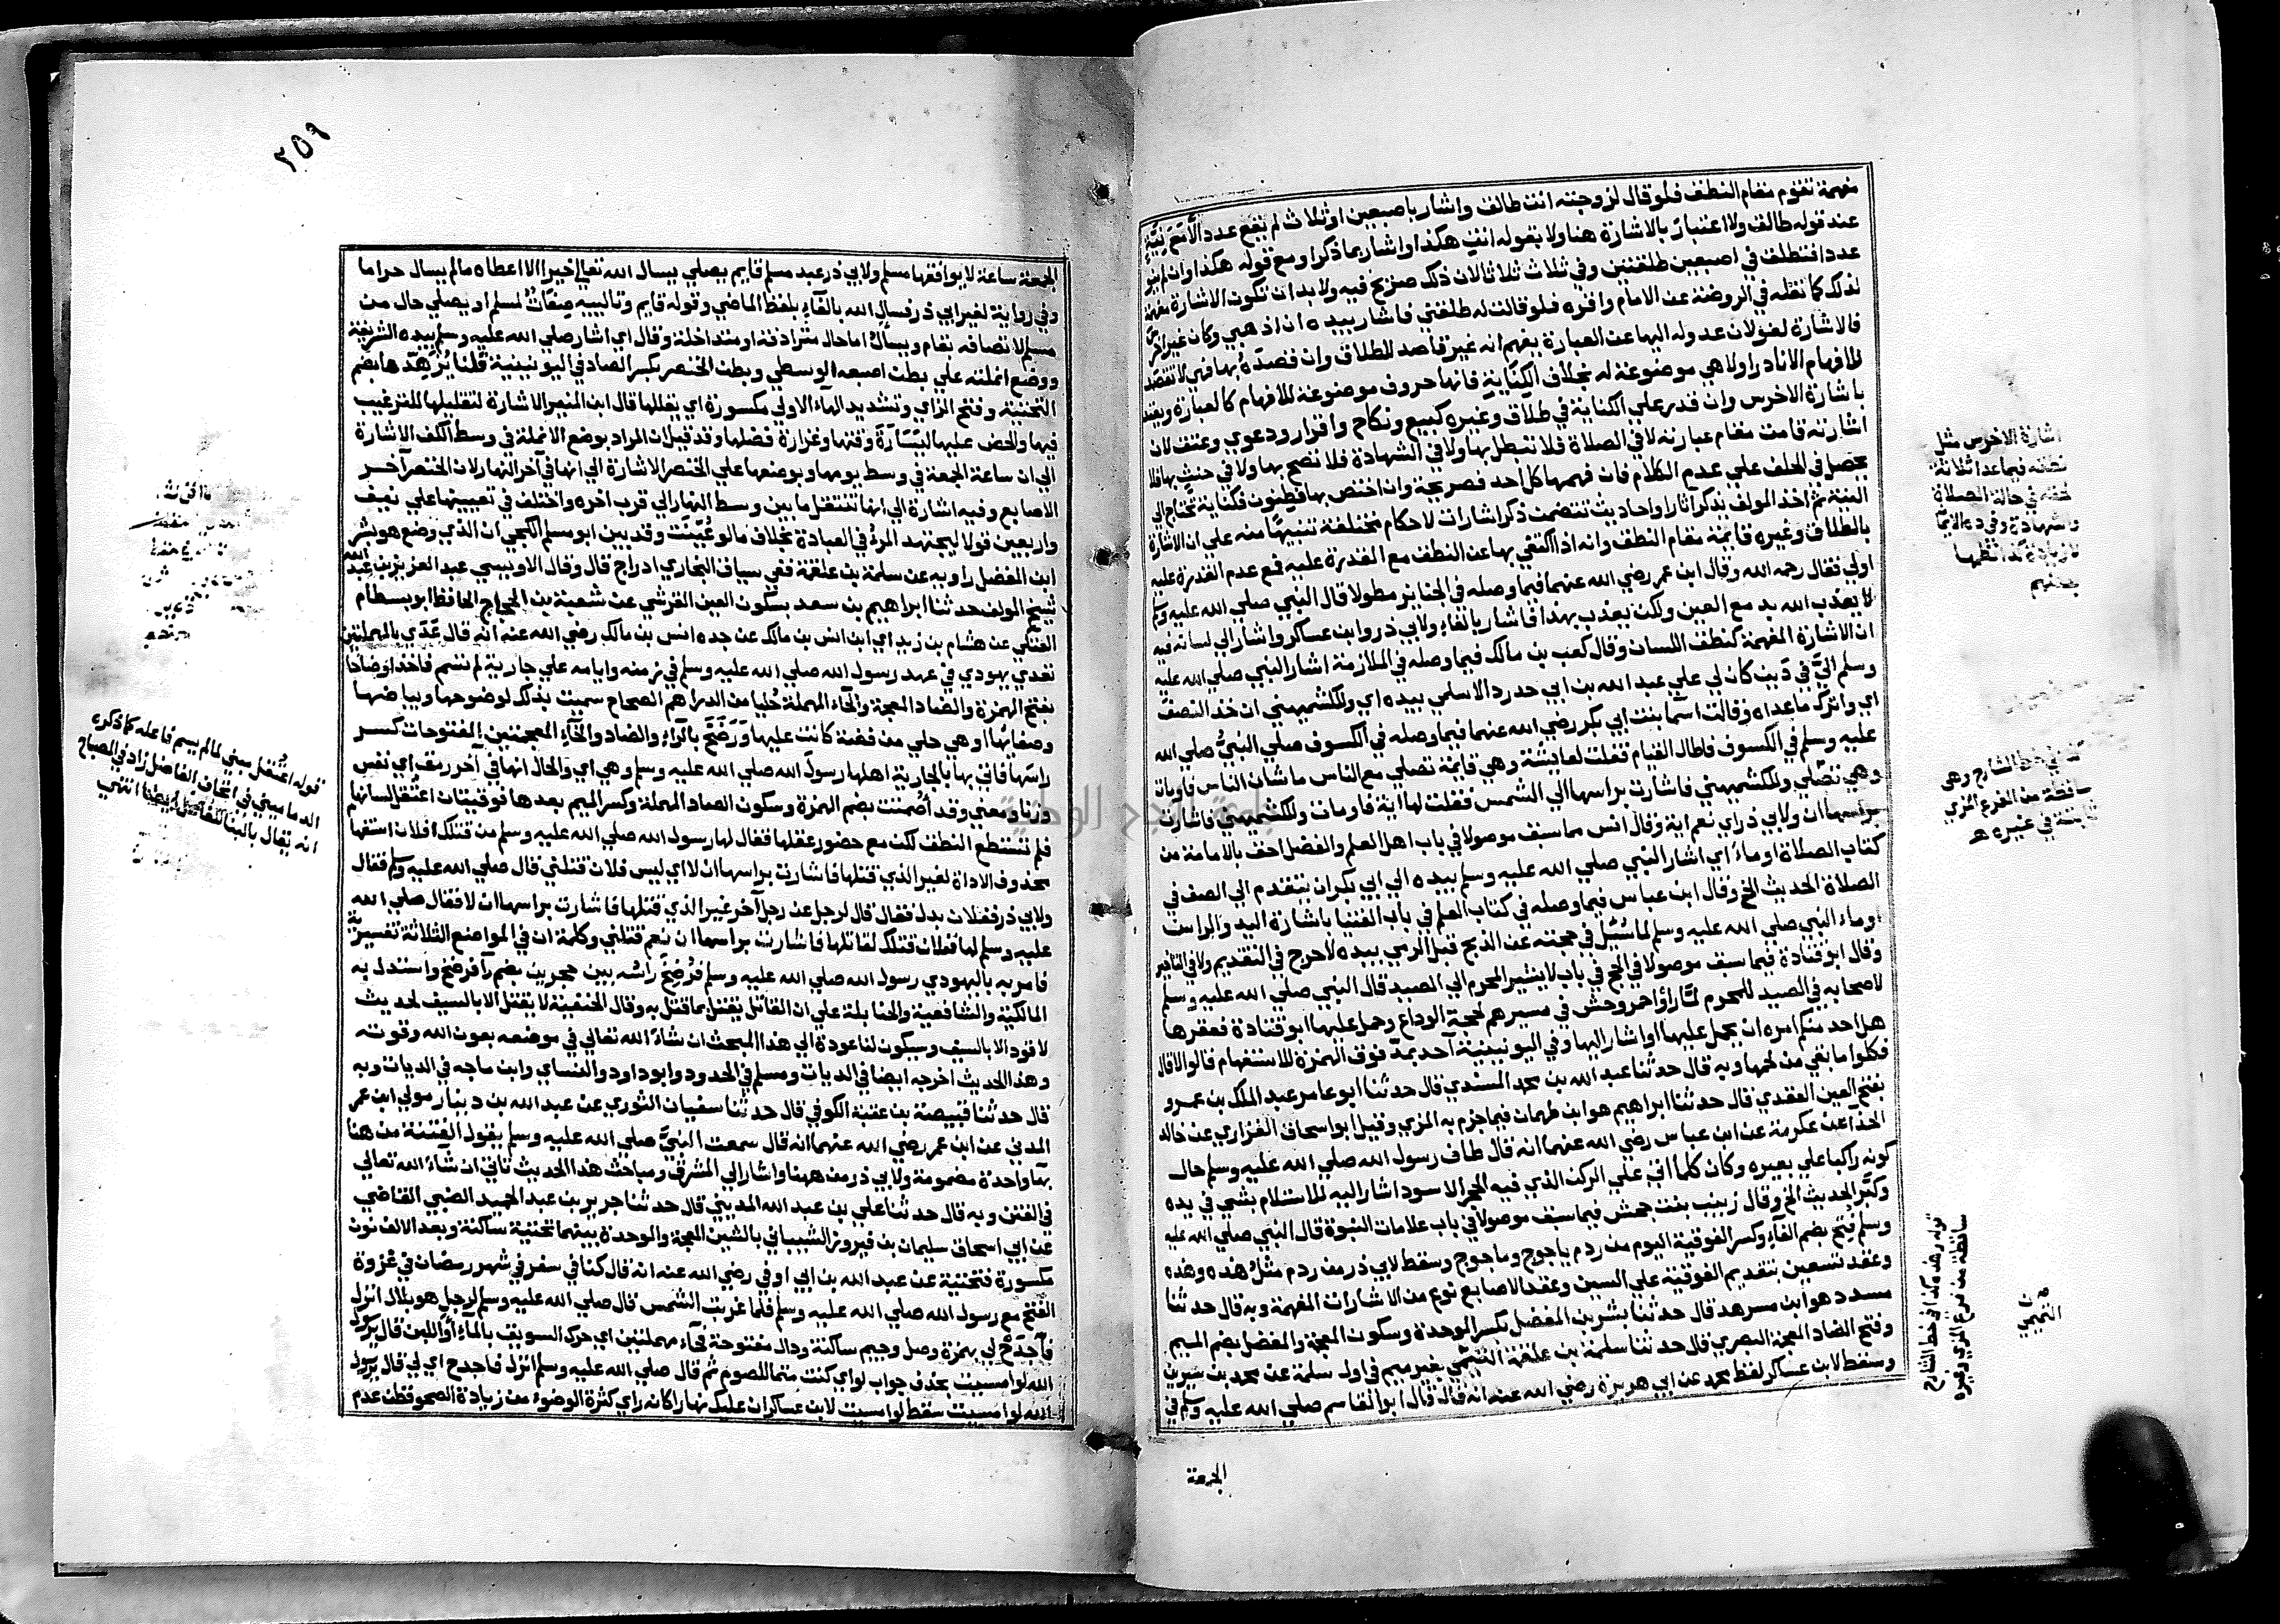 مفهمة تقوم مقام النطق فلو قال لزوجته انت طالق واشار باصبعين او ثلاث لم يقع عدد الا مع نية
عند قوله طالق ولا اعتبار بالاشارة هنا ولا بقوله انت هكذا واشار بما ذكرا ومع قوله هكذا وان لم ينو
عددا فتطلق في اصبعين طلقتين وفي ثلاث ثلاثا لان ذلك صريح فيه ولا بد ان تكون الاشارة مفهمة
لذلك كما نقله في الروضة عن الامام واقره فلو قالت له طلقني فاشار بيده ان اذهبي وكان غير اخرس
فالاشارة لغو لان عدوله اليها عن العبارة يفهم انه غير قاصد للطلاق وان قصده بها فهي لا تقصد
للافهام الا نادرا ولا هي موضوعة له بخلاف الكناية فانها حروف موضوعة للافهام كالعبارة ويعتد
باشارة الاخرس وان قدر علي الكتابة في طلاق وغيره كبيع ونكاح واقرار ودعوي وعتق لان
اشارته قامت مقام عبارته لا في الصلاة فلا تبطل بها ولا في الشهادة فلا تصح بها ولا في حنث بها فلا
يحصل في الحلف علي عدم الكلام فان فهمها كل احد فصريحة وان اختص بها فطنون فكناية تحتاج الي
النية ثم اخذ المولف يذكر اثارا واحاديث تتضمن ذكر اشارات لاحكام مختلفة تنبيها منه علي ان الاشارة
بالطلاق وغيره قايمة مقام النطق وانه اذا اكتفي بها عن النطق مع القدرة عليه فمع عدم القدرة عليه
اولي فقال رحمه الله وقال ابن عمر رضي الله عنهما فيما وصله في الجنايز مطولا قال النبي صلي الله عليه وسلم
لا يعذب الله بدمع العين ولكن يعذب بهذا فاشار بالفاء ولابي ذر وابن عساكر واشار الي لسانه فيه
ان الاشارة المفهمة كنطق اللسان وقال كعب بن مالك فيما وصله في الملازمة اشار النبي صلي الله عليه
وسلم الي في دين كان لي علي عبد الله بن ابي حدرد الاسلمي بيده اي وللكشميهني ان خذ النصف
اي واترك ما عداه وقالت اسما بنت ابي بكر رضي الله عنهما فيما وصله في الكسوف صلي النبي صلي الله
عليه وسلم في الكسوف فاطال القيام فقلت لعايشة وهي قايمة تصلي مع الناس ما شان الناس فاومات
وهي تصلي وللكشميهني فاشارت براسها الي الشمس فقلت لها اية فاومات وللكشميهني فاشارت
براسها ان ولابي ذر اي نعم اية وقال انس مما سبق موصولا في باب اهل العلم والفضل احق بالامامة من
كتاب الصلاة اوما اي اشار النبي صلي الله عليه وسلم بيده الي ابي بكر ان يتقدم الي الصف في
الصلاة الحديث الخ وقال ابن عباس فيما وصله في كتاب العلم في باب الفتيا باشارة اليد والراس
اوماء النبي صلي الله عليه وسلم لما سئل في حجته عن الذبح قبل الرمي بيده لا حرج في التقديم ولا في التاخير
وقال ابو قتادة فيما سبق موصولا في الحج في باب لا يشير المحرم الي الصيد قال النبي صلي الله عليه وسلم
لاصحابه في الصيد للمحرم لما راوا حمر وحش في مسيرهم لحجة الوداع وحمل عليها ابو قتادة فعقرها
هل احد منكم امره ان يحمل عليها او اشار اليها وفي اليونينية آحد بمد فوق الهمزة للاستفهام قالوا لا قال
فكلوا ما بقي من لحمها وبه قال حدثنا عبد الله بن محمد المسندي قال حدثنا ابو عامر عبد الملك بن عمرو
بفتح العين العقدي قال حدثنا ابراهيم هو ابن طهمان فيما جزم به المزي وقيل ابو اسحاق الفزاري عن خالد
الحذا عن عكرمة عن ابن عباس رضي الله عنهما انه قال طاف رسول الله صلي الله عليه وسلم حال
كونه راكبا علي بعيره وكان كلما اتي علي الركن الذي فيه الحجر الاسود اشار اليه للاستلام بشي في يده
وكبر الحديث الخ وقال زينب بنت جحش فيما سبق موصولا في باب علامات النبوة قال النبي صلي الله عليه
وسلم فتح بضم الفاء وكسر الفوقية اليوم من ردم ياجوج وماجوج وسقط لابي ذر من ردم مثل هذه وهذه
وعقد تسعين بتقديم الفوقية علي السين وعقد الاصابع نوع من الاشارات المفهمة وبه قال حدثنا
مسدد هو ابن مسرهد قال حدثنا بشر بن المفضل بكسر الموحدة وسكون المعجمة والمفضل بضم الميم
وفتح الضاد المعجمة البصري قال حدثنا سلمة بن علقمة التيمي بغير ميم في اول سلمة عن محمد بن سيرين
وسقط لابن عساكر لفظ محمد عن ابي هريرة رضي الله عنه انه قال قال ابو القاسم صلي الله عليه وسلم في
الجمعة
اشارة الاخرس مثل
نطقه فيما عدا ثلاثة
قوله وهذه هكذا في خط الشارح
ساقطة من فرع المزي وغيره
التميمي
في خط الشارح وهي
ساقطة من الفرع المزي
ثابتة في غيره هـ
٢٥٩
الجمعة ساعة لا يوافقها مسلم ولابي ذر عبد مسلم قايم يصلي يسال الله تعالي خيرا الا اعطاه ما لم يسال حراما
وفي رواية لغير ابي ذر فسال الله بالفاء بلفظ الماضي وقوله قايم وتالييه صفات لمسلم او يصلي حال من
مسلم لاتصافه بقام ويسال اما حال مترادفة او متداخلة وقال اي اشار صلي الله عليه وسلم بيده الشريفة
ووضع انملته علي بطن اصبعه الوسطي وبطن الخنصر بكسر الصاد في اليونينية قلنا يزهدها بضم
التحتية وفتح الزاي وتشديد الهاء الاولي مكسورة اي يقللها قال ابن المنير الاشارة لتقليلها للترغيب
فيها والحض عليها ليسارة وقتها وغزارة فضلها وقد قيل ان المراد بوضع الانملة في وسط الكف الاشارة
الي ان ساعة الجمعة في وسط يومها وبوضعها علي الخنصر الاشارة الي انها في آخر النهار لان الخنصر آخر
الاصابع وفيه اشارة الي انها تنتقل ما بين وسط النهار الي قرب اخره واختلف في تعيينها علي نيف
واربعين قولا ليجتهد المرء في العبادة بخلاف ما لو عينت وقد بين ابو مسلم الكجي ان الذي وضع هو بشر
ابن المفضل راويه عن سلمة بن علقمة ففي سياق البخاري ادراج قال وقال الاويسي عبد العزيز بن عبد الله
شيخ المولف حدثنا ابراهيم بن سعد بسكون العين القرشي عن شعبة بن الحجاج الحافظ ابو بسطام
العتكي عن هشام بن زيد اي ابن انس بن مالك عن جده انس بن مالك رضي الله عنه انه قال عدي بالمهملتين
تعدي يهودي في عهد رسول الله صلي الله عليه وسلم في زمنه وايامه علي جارية لم تسم فاخذ اوضاحا
بفتح الهمزة والضاد المعجمة والحاء المهملة حليا من الدراهم الصحاح سميت بذلك لوضوحها وبياضها
وصفائها او هي حلي من فضة كانت عليها ورضخ بالراء والضاد والخاء المعجمتين المفتوحات كسر
راسها فاتي بها بالجارية اهلها رسول الله صلي الله عليه وسلم وهي اي والحال انها في آخر رمق اي نفس
وزنا ومعني وقد اصمتت بضم الهمزة وسكون الصاد المهملة وكسر الميم بعدها فوقيتان اعتقل لسانها
فلم تستطع النطق لكن مع حضور عقلها فقال لها رسول الله صلي الله عليه وسلم من قتلك افلان استفهام
محذوف الاداة لغير الذي قتلها فاشارت براسها ان لا اي ليس فلان قتلني قال صلي الله عليه وسلم فقال
ولابي ذر ففلان بدل فقال قال لرجل عن رجل آخر غير الذي قتلها فاشارت براسها ان لا فقال صلي الله
عليه وسلم لها ففلان قتلك لقاتلها فاشارت براسها ان نعم قتلني وكلمة ان في المواضع الثلاثة تفسيرية
فامر به باليهودي رسول الله صلي الله عليه وسلم فرضخ راسه بين حجرين بضم را فرضخ واستدل به
المالكية والشافعية والحنابلة علي ان القاتل يقتل بما قتل به وقال الحنفية لا يقتل الا بالسيف لحديث
لا قود الا بالسيف وسيكون لنا عودة الي هذا المبحث ان شاء الله تعالي في موضعه بعون الله وقوته
وهذا الحديث اخرجه ايضا في الديات ومسلم في الحدود وابو داود والنساي وابن ماجه في الديات وبه
قال حدثنا قبيصة بن عقبة الكوفي قال حدثنا سفيان الثوري عن عبد الله بن دينار مولي ابن عمر
المدني عن ابن عمر رضي الله عنهما انه قال سمعت النبي صلي الله عليه وسلم يقول الفتنة من هنا
بها واحدة مضمومة ولابي ذر من ههنا واشار الي المشرق ومباحث هذا الحديث تاتي ان شاء الله تعالي
في الفتن وبه قال حدثنا علي بن عبد الله المديني قال حدثنا جرير بن عبد الحميد الضبي القاضي
عن ابي اسحاق سليمان بن فيروز الشيباني بالشين المعجمة والموحدة بينهما تحتية ساكنة وبعد الالف نون
مكسورة فتحتية عن عبد الله بن ابي اوفي رضي الله عنه انه قال كنا في سفر في شهر رمضان في غزوة
الفتح مع رسول الله صلي الله عليه وسلم فلما غربت الشمس قال صلي الله عليه وسلم لرجل هو بلال انزل
فاجدح لي بهمزة وصل وجيم ساكنة ودال مفتوحة فحاء مهملتين اي حرك السويق بالماء او اللبن قال يرسول
الله لو امسيت بحذف جواب لو اي كنت متما للصوم ثم قال صلي الله عليه وسلم انزل فاجدح اي لي قال يرسول
الله لو امسيت سقط لو امسيت لابن عساكر ان عليك نهارا كانه راي كثرة الوضوء من زيادة الصحو فظن عدم
قوله اعتقل مبني لما لم يسم فاعله كما ذكره
الدماميني في اتحاف الفاضل زاد في المصباح
انه يقال بالبنا للفاعل ايضا انتهي